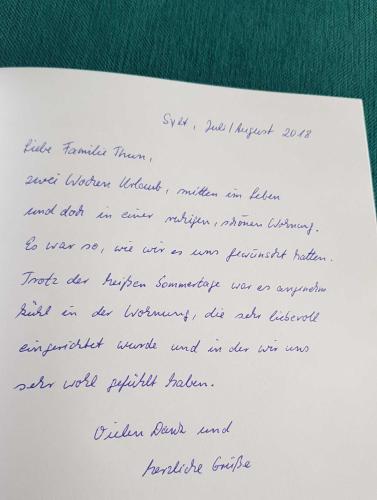 Sylt, Juli/August 2018
Liebe Familie Thun,
zwei Wochen Urlaub, mitten im Leben
und doch in einer ruhigen, schönen Wohnung.
Es war so, wie wir es uns gewünscht hatten.
Trotz der heißen Sommertage war es angenehm
kühl in der Wohnung, die sehr liebevoll
eingerichtet wurde und in der wir uns
sehr wohl gefühlt haben.
Vielen Dank und
herzliche Grüße